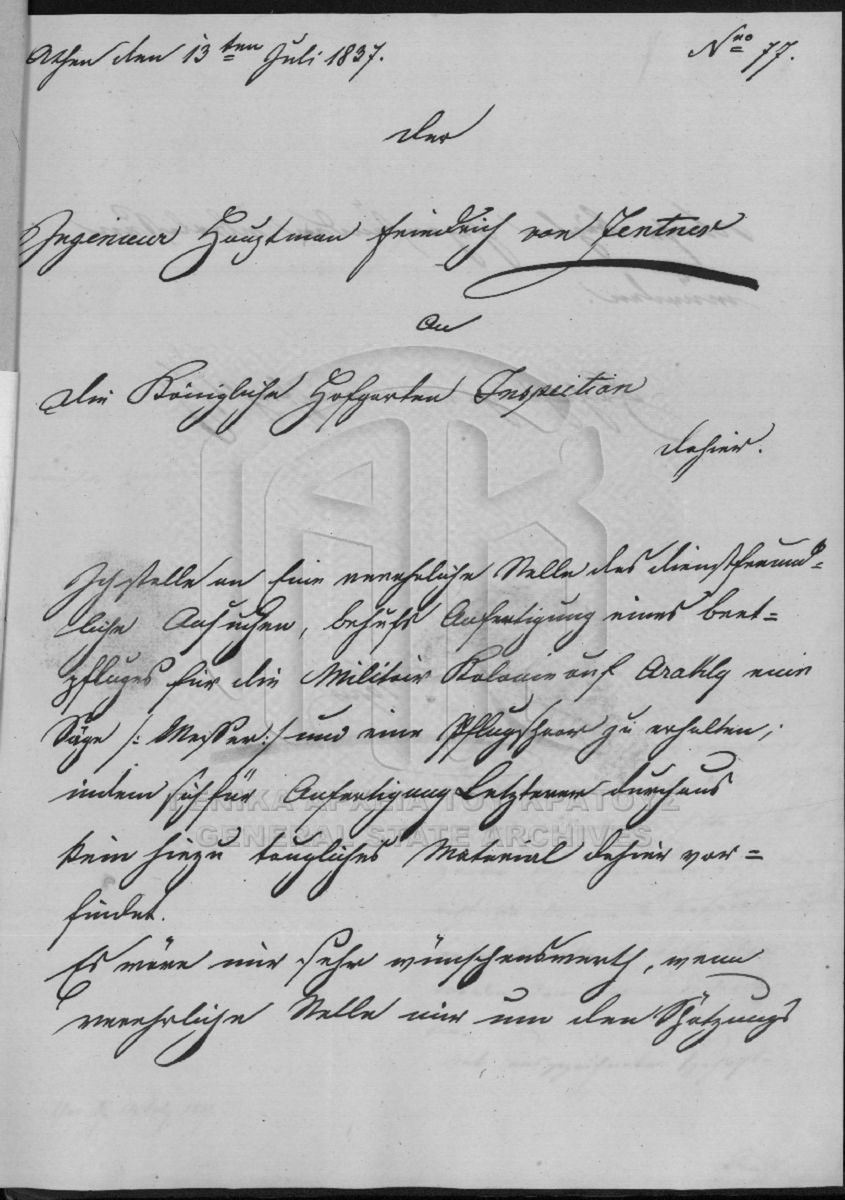 Athen den 13ten Juli 1837.
Nro 77.
Der
Ingenieur Hauptman Friedrich von Zentner
An
Die Königliche Hofgarten Inspection
dahier.
Ich stelle an Eine verehrliche Stelle das dienstfreund=
liche Ansuchen, behufs Anfertigung eines Beet=
pfluges für die Militair Kolonie auf Arakly eine
Säge /: Messer :/ und eine Pflugschaar zu erhalten,
indem sich für Anfertigung Letzterer durchaus
kein hiezu taugliches Material dahier vor=
findet.
Es wäre mir sehr wünschenswerth, wenn
verehrliche Stelle mir um den Schätzungs
ΓΕΝΙΚΑ ΑΡΧΕΙΑ ΤΟΥ ΚΡΑΤΟΥΣ
GENERAL STATE ARCHIVES